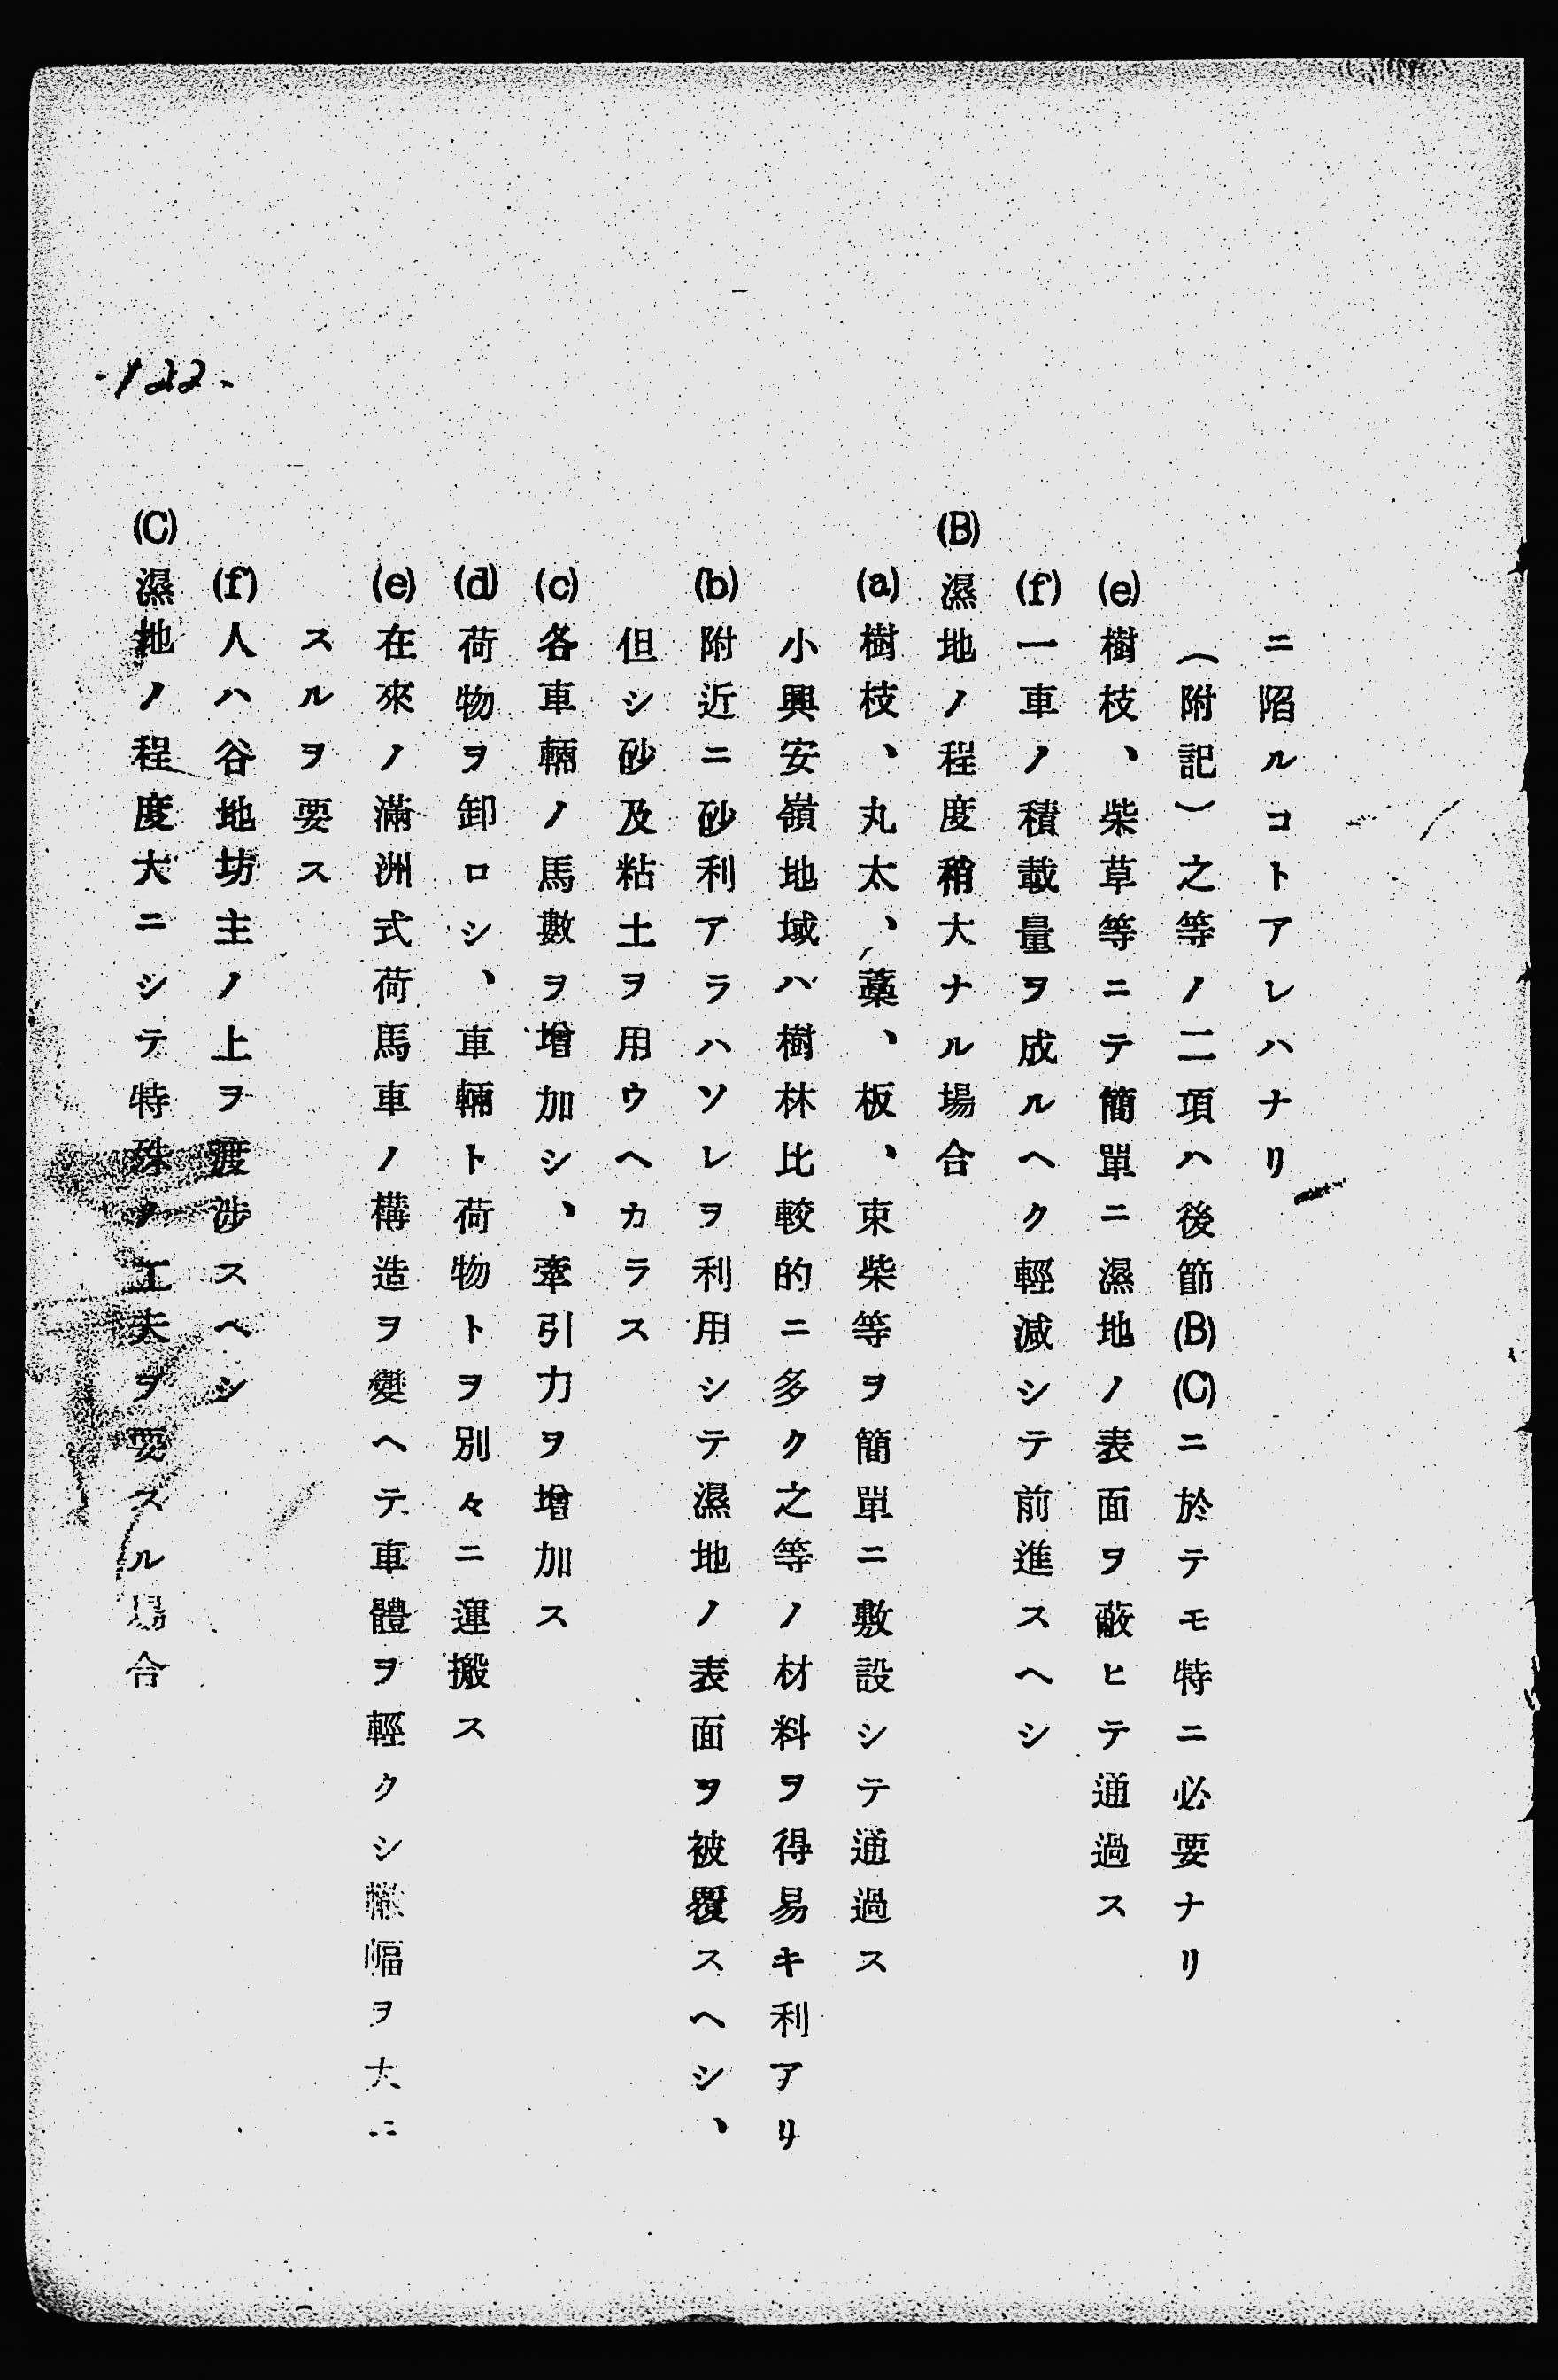 ニ陷ルコトアレハナリ
（附記）之等ノ二項ハ後節(B)(C)ニ於テモ特ニ必要ナリ
(e)樹枝、柴草等ニテ簡單ニ濕地ノ表面ヲ蔽ヒテ通過ス
(f)一車ノ積載量ヲ成ルヘク輕減シテ前進スヘシ
(B)濕地ノ程度稍大ナル場合
(a)樹枝、丸太、藁、板、束柴等ヲ簡單ニ敷設シテ通過ス
小興安嶺地域ハ樹林比較的ニ多ク之等ノ材料ヲ得易キ利アリ
(b)附近ニ砂利アラハソレヲ利用シテ濕地ノ表面ヲ被覆スヘシ、
但シ砂及粘土ヲ用ウヘカラス
(c)各車輛ノ馬數ヲ增加シ、牽引力ヲ增加ス
(d)荷物ヲ卸ロシ、車輛ト荷物トヲ別々ニ運搬ス
(e)在來ノ滿洲式荷馬車ノ構造ヲ變ヘテ車體ヲ輕クシ轍幅ヲ大ニ
スルヲ要ス
(f)人ハ谷地坊主ノ上ヲ渡涉スヘシ
(C)濕地ノ程度大ニシテ特殊ノ工夫ヲ要スル場合
-122-